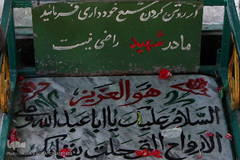 از روشن کردن شمع خودداری فرمائید
مادر شهید راضی نیست
هو العزیز
السلام علیک یا ابا عبدالله و
الارواح التی حلت بفنائک